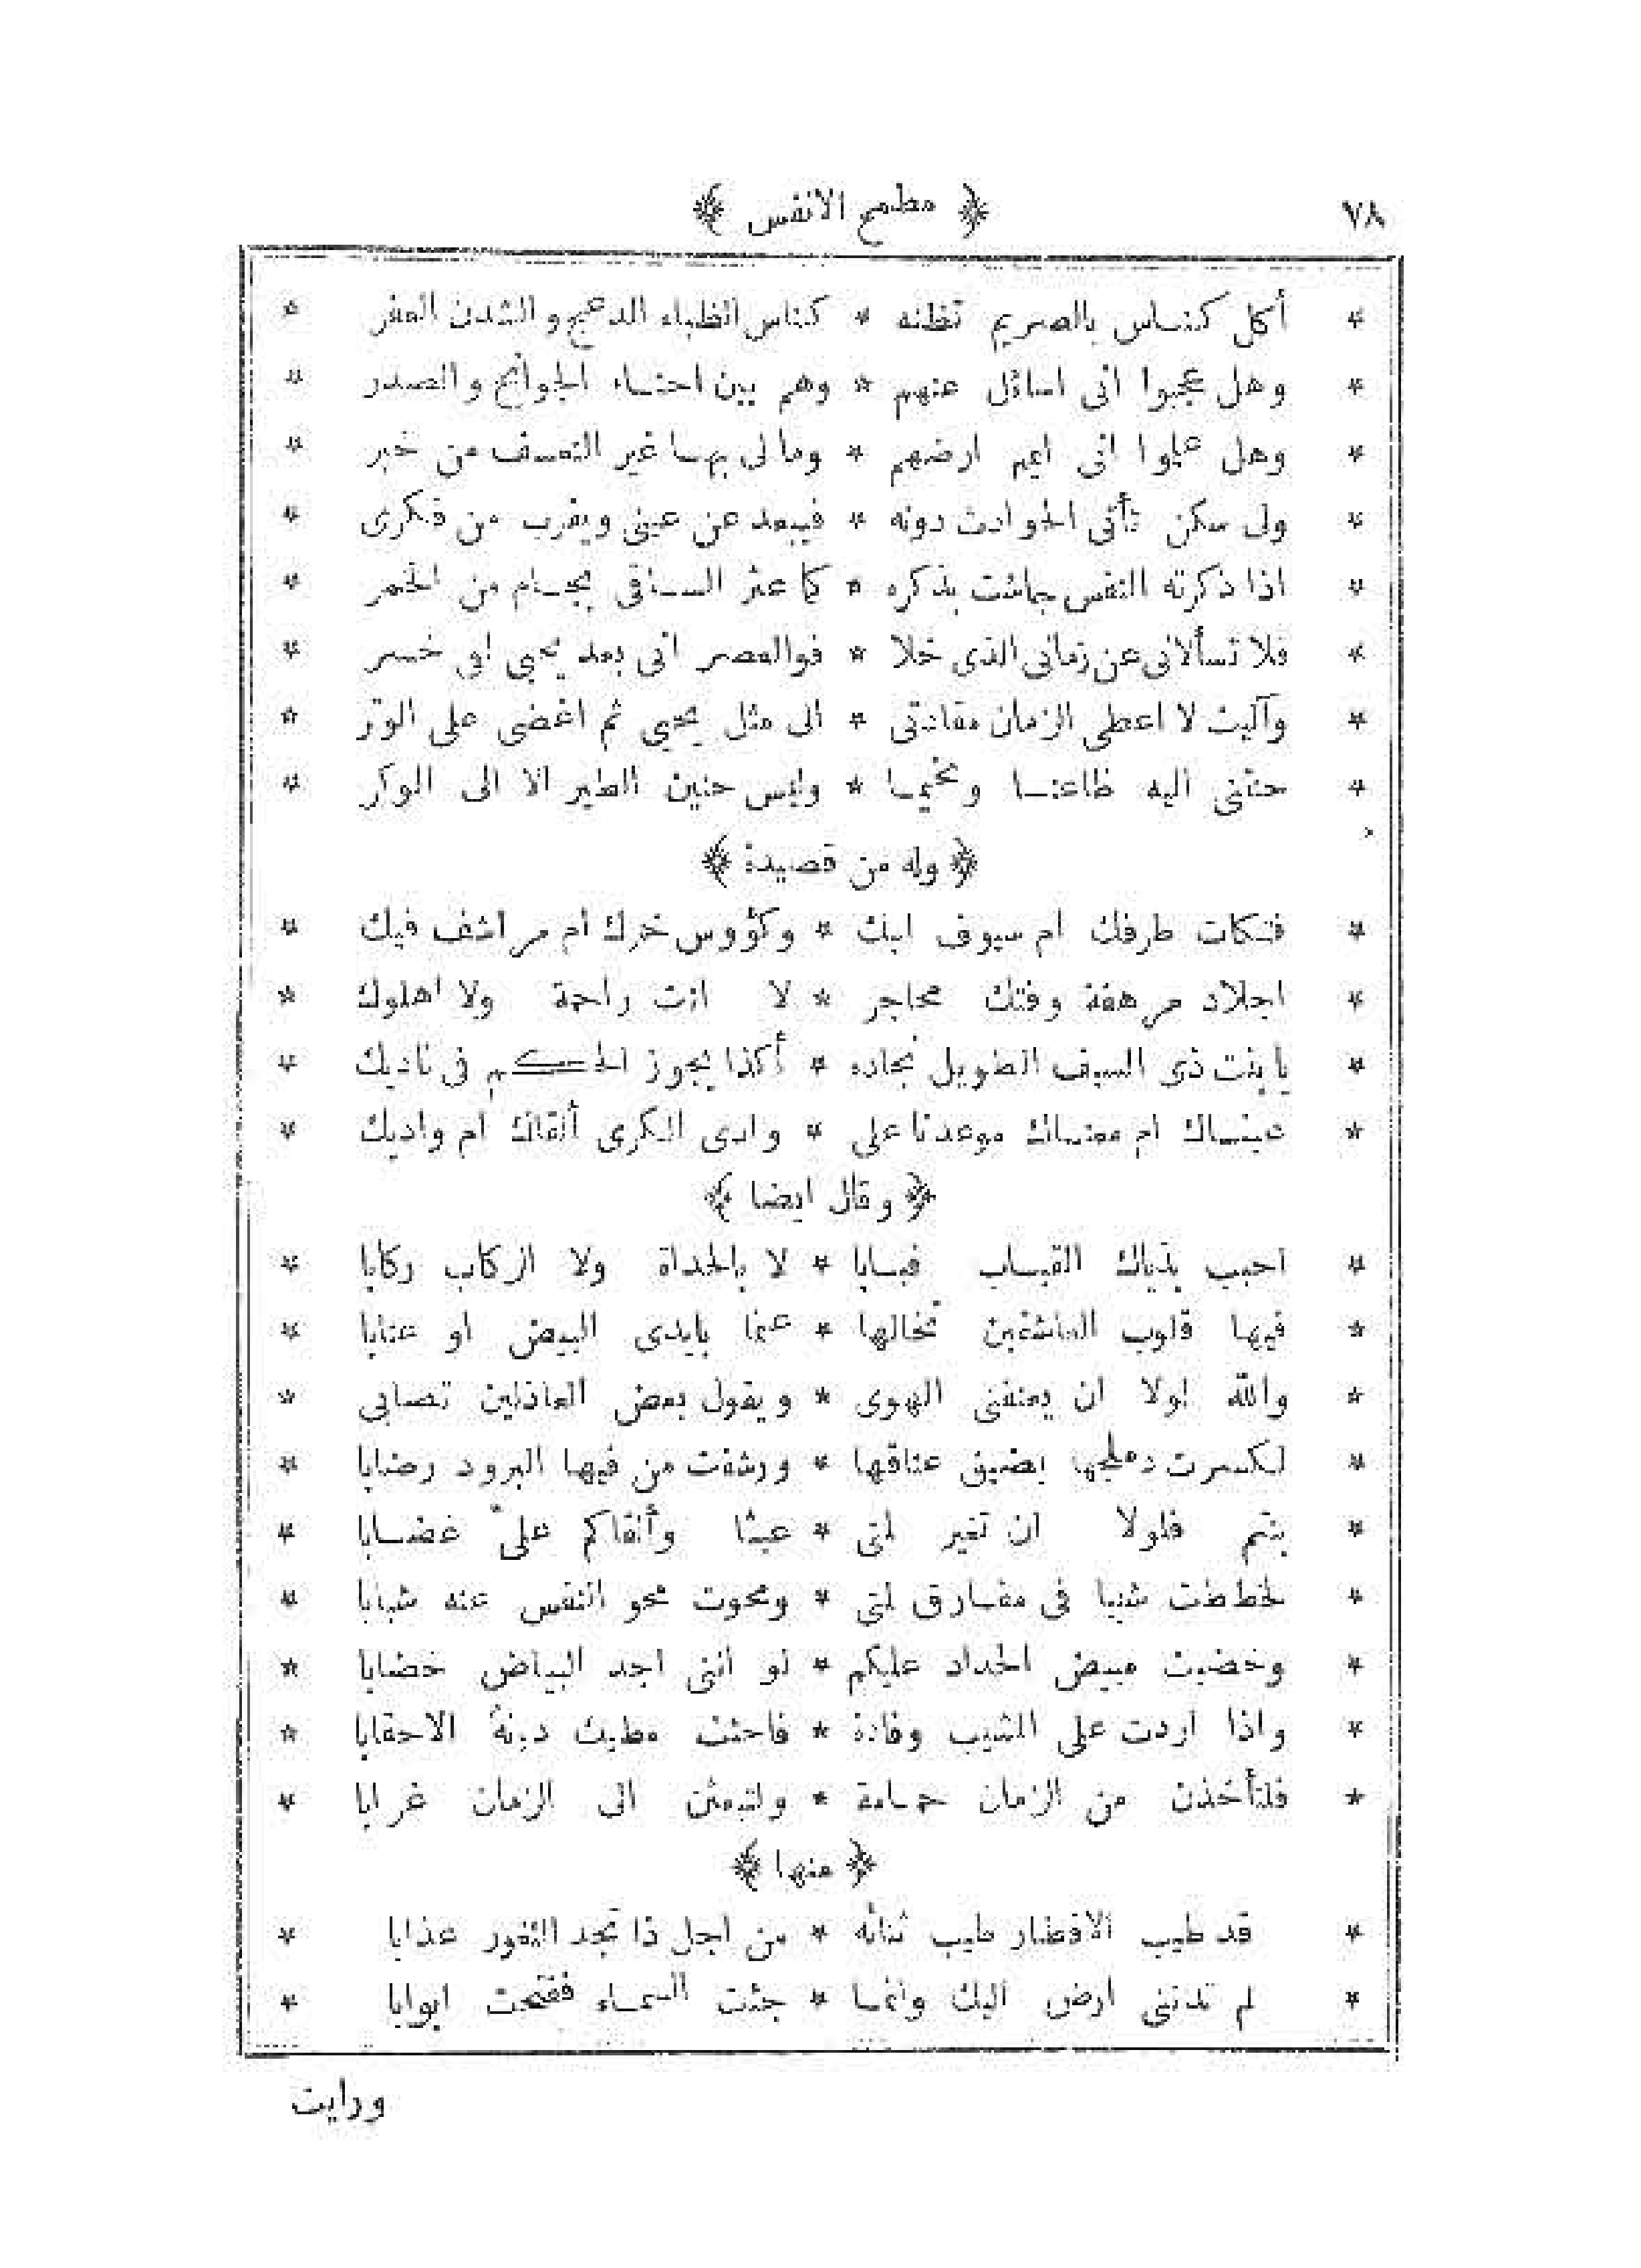 ٧٨ ﴿ مطمح الانفس ﴾
* أكل كنـاس بالصريم تظنه * كناس الظباء الدعج و الشدن العفر *
* وهل عجبوا انى اسائل عنهم * وهم بين احنـاء الجوانح و الصدر *
* وهل علموا انى اعيم ارضهم * ومالى بهـا غير التعسف من خبر *
* ولى سكن تأتى الحوادث دونه * فيبعد عن عينى ويقرب من فكرى *
* اذا ذكرته النفس جاشت بذكره * كما عثر السـاقى بجـام من الخمر *
* فلا تسألانى عن زمانى الذى خلا * فوالعصر انى بعد يحيى لفى خسر *
* وآليت لا اعطى الزمان مقادتى * الى مثل يحيى ثم اغضى على الوتر *
* حنتنى اليه ظاعنـا ومخيمـا * وليس حنين الطير الا الى الوكر *
﴿ وله من قصيدة ﴾
* فتكات طرفك ام سيوف ابيك * وكؤوس خمرك أم مراشف فيك *
* اجلاد مرهفة وفتك محاجر * لا انت راحمة ولا اهلوك *
* يا بنت ذى السيف الطويل نجاده * أكذا يجوز الحـكـم فى ناديك *
* عينـاك ام مغنـاك موعدنا على * وادى الكرى ألقاك ام واديك *
﴿ وقال ايضا ﴾
* احبب بذياك القبـاب قبـابا * لا بالحداة ولا الركاب ركابا *
* فيها قلوب العاشقين تخالها * عنما بايدى البيض او عنابا *
* والله لولا ان يعنفنى الهوى * ويقول بعض العاذلين تصابى *
* لكسرت دملجها بضيق عناقها * ورشفت من فيها البرود رضابا *
* بنتم فلولا ان تغير لمتى * عبثا وألقاكم علىّ غضـابا *
* لخططت شيبا فى مفـارق لمتى * ومحوت محو النقس عنه شبابا *
* وخضبت مبيض الحداد عليكم * لو اننى اجد البياض خضابا *
* واذا اردت على المشيب وفادة * فاحثث مطيك دونهُ الاحقابا *
* فلتأخذن من الزمان حمـامة * ولتبعثن الى الزمان غرابا *
﴿ منها ﴾
* قد طيب الاقطار طيب ثنائه * من اجل ذا تجد الثغور عذابا *
* لم تدننى ارض اليك وانمـا * جئت السمـاء ففتحت ابوابا *
ورايت